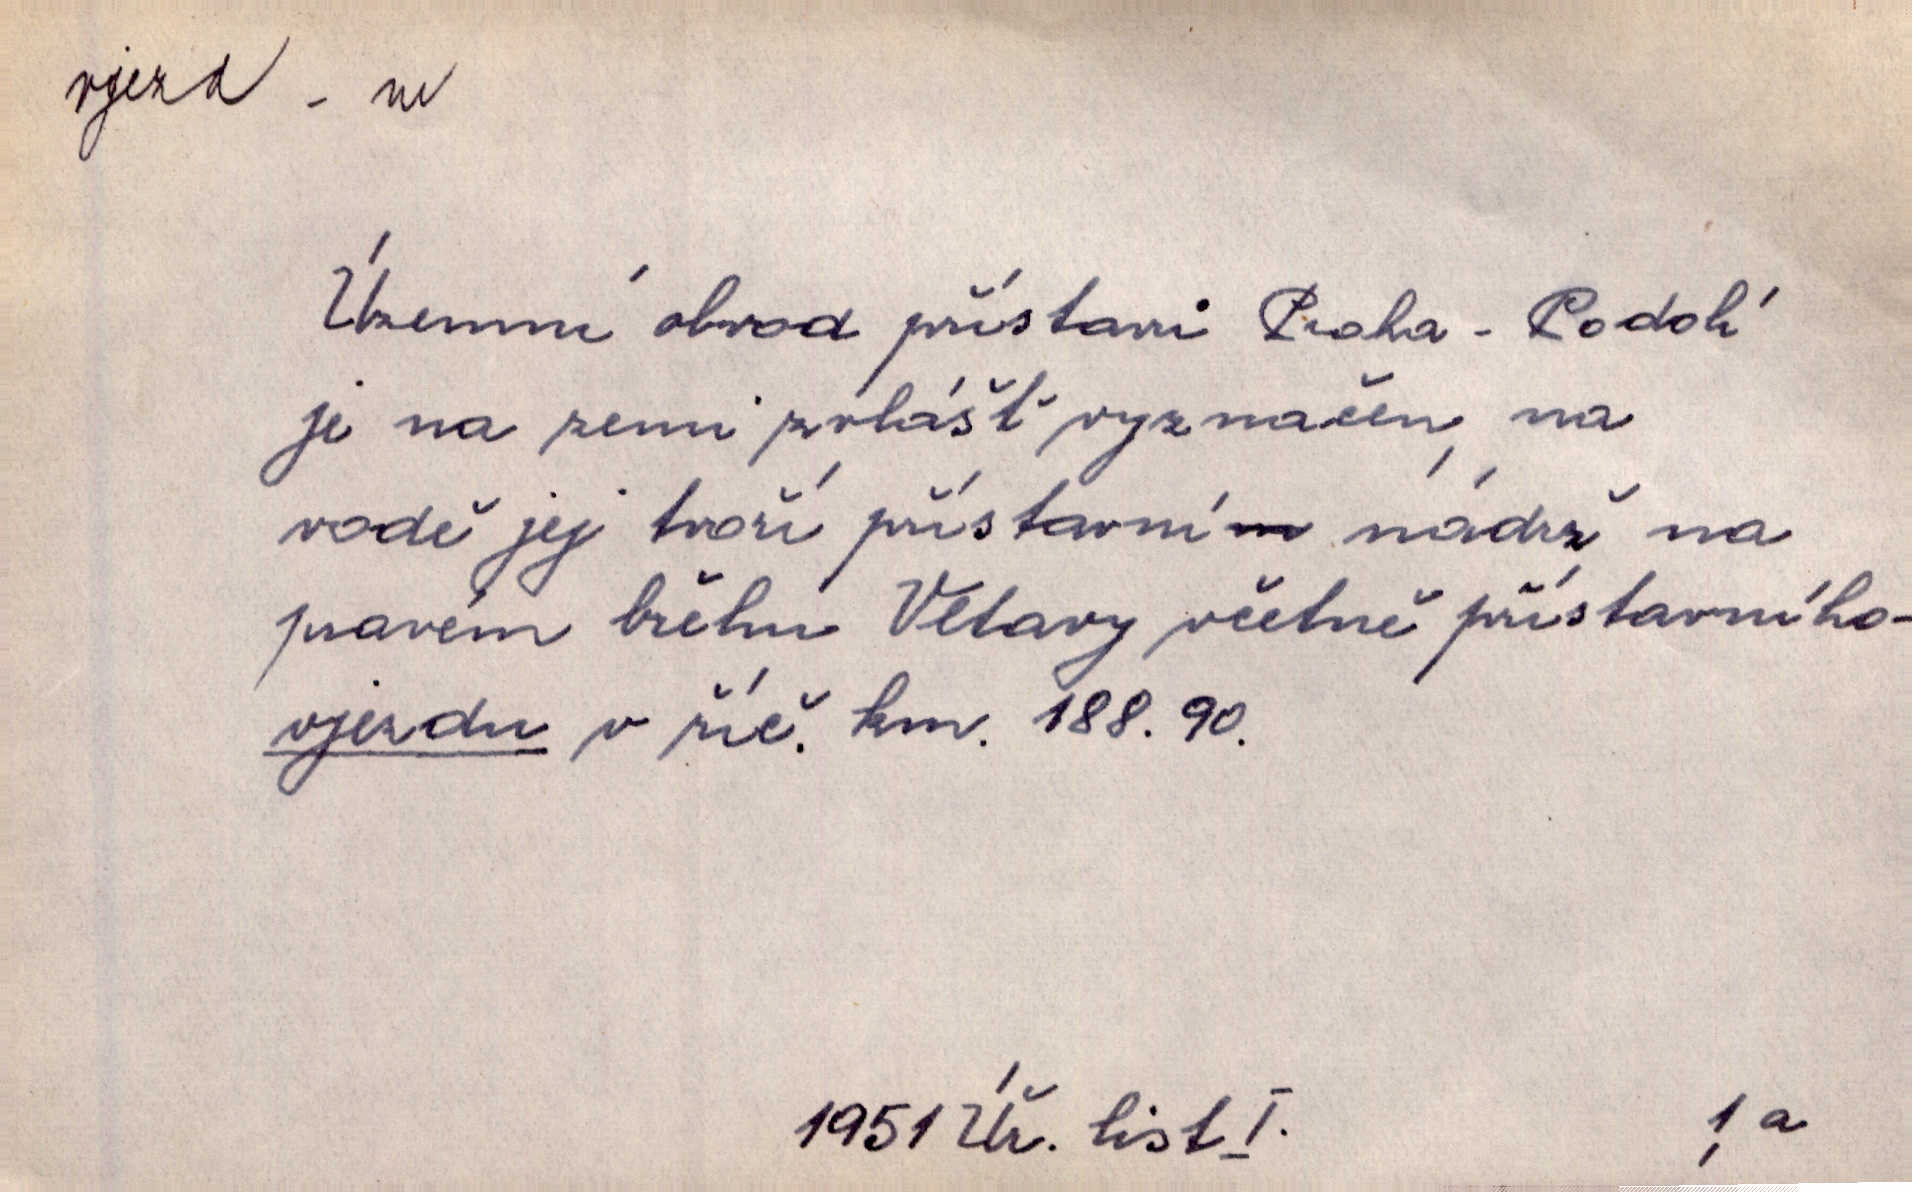 vjezd - u
Územní obvod přístavi Praha - Podolí
je na zemi zvlášť vyznačen, na
vodě jej tvoří přístavní nádrž na
pravém břehu Vltavy včetně přístavního
vjezdu v říč. km. 188.90.
1951 Úř. list I. 1,a